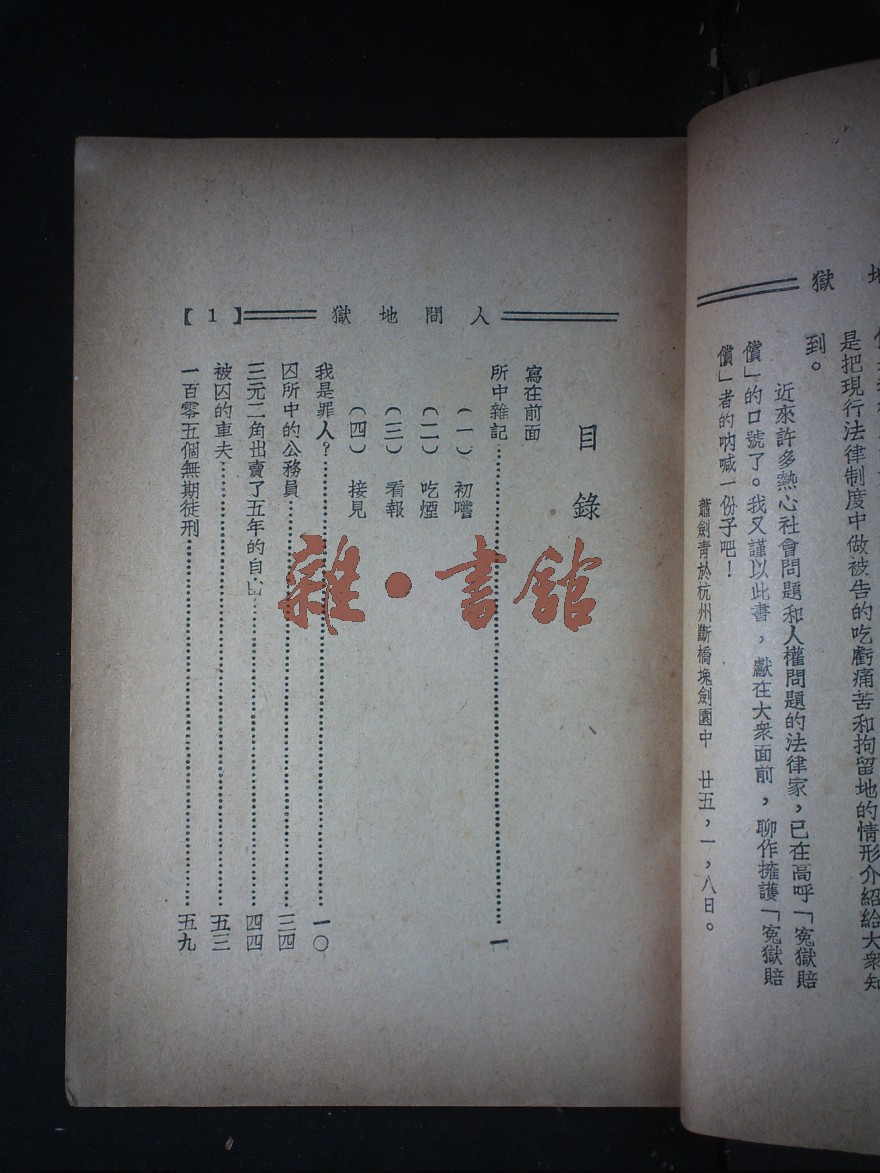 地獄
是把現行法律制度中做被告的吃虧痛苦和拘留地的情形介紹給大衆知
到。
近來許多熱心社會問題和人權問題的法律家，已在高呼「冤獄賠
償」的口號了。我又謹以此書，獻在大衆面前，聊作擁護「冤獄賠
償」者的吶喊一份子吧！
蕭劍青於杭州斷橋堍劍園中　廿五，一，八日。
人間地獄【1】
目錄
寫在前面
所中雜記……一
（一）初嚐
（二）吃煙
（三）看報
（四）接見
我是罪人？……一〇
囚所中的公務員……三四
三元二角出賣了五年的自由……四四
被囚的車夫……五三
一百零五個無期徒刑……五九
雜·書館